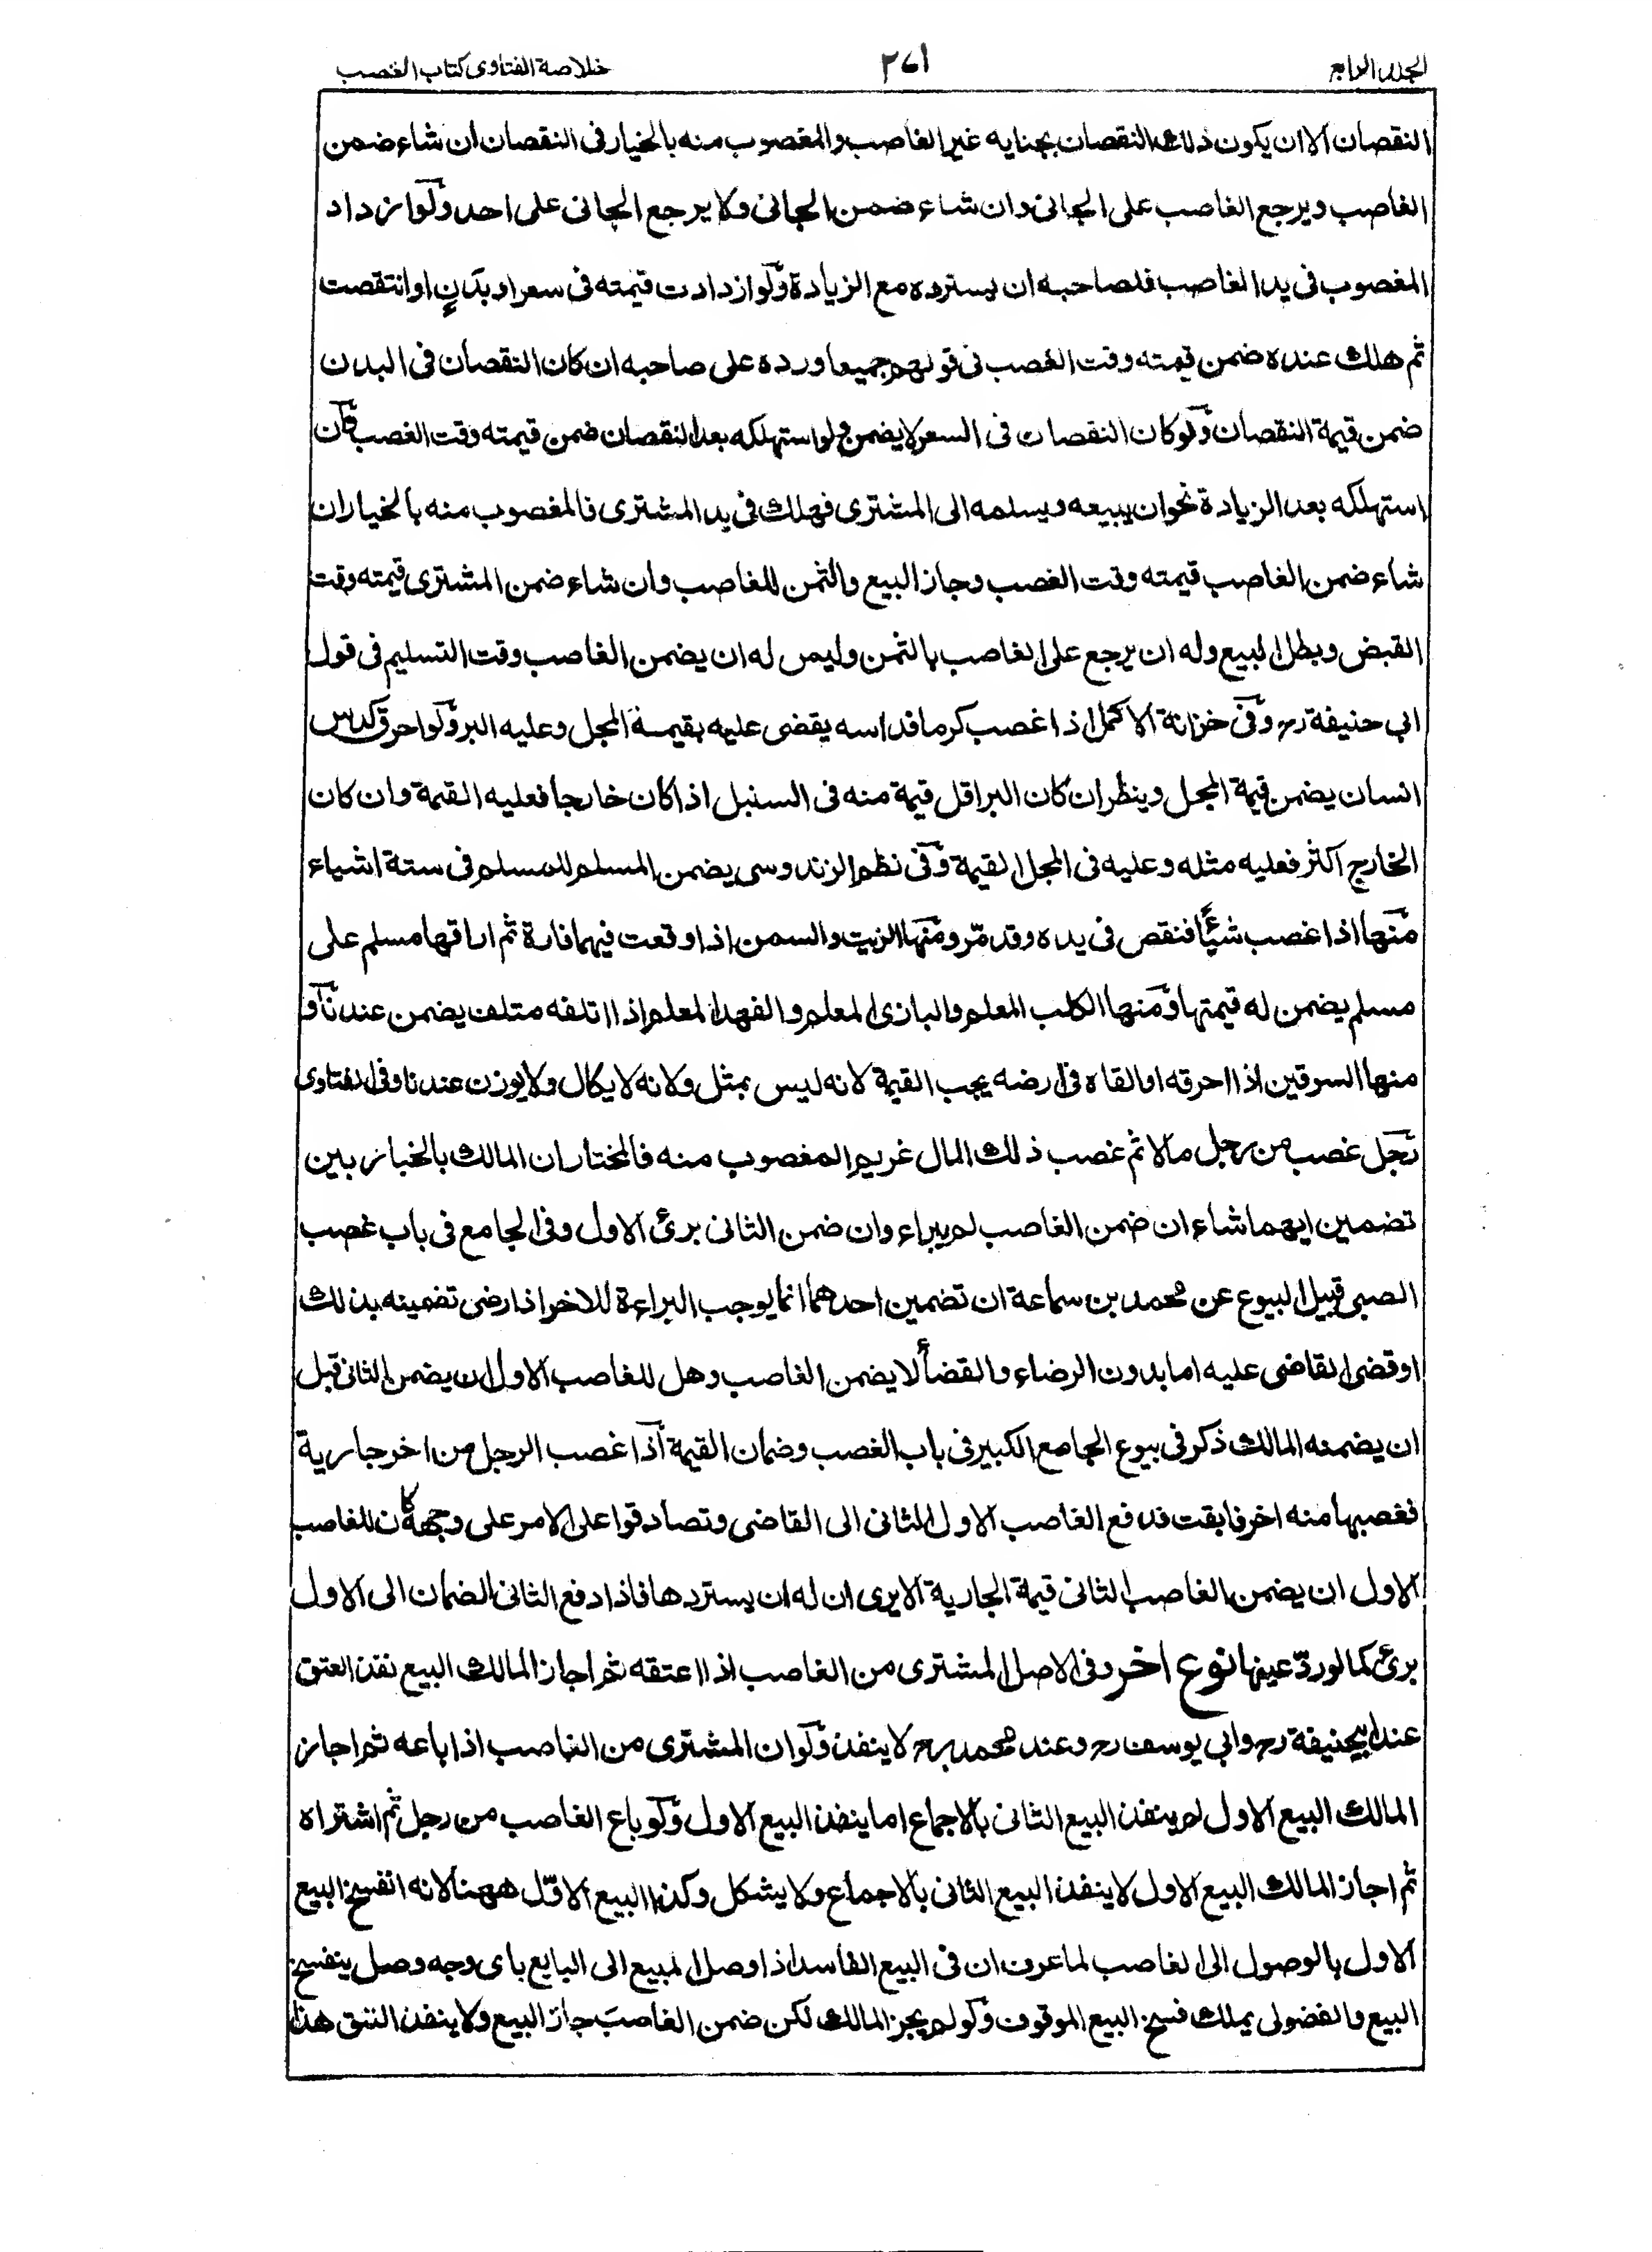 الجلد الرابع ٢٧١ خلاصة الفتاوى كتاب الغصب
النقصان الا ان يكون ذلك النقصان بجنايه غير الغاصب والمغصوب منه بالخيار فى النقصان ان شاء ضمن
الغاصب ويرجع الغاصب على الجانى وان شاء ضمن الجانى ولا يرجع الجانى على احد ولو ازداد
المغصوب فى يد الغاصب فلصاحبه ان يسترده مع الزيادة ولو ازدادت قيمته فى سعر او بدن او انتقصت
ثم هلك عنده ضمن قيمته وقت الغصب فى قولهم جميعا ورده على صاحبه ان كان النقصان فى البدن
ضمن قيمة النقصان ولو كان النقصان فى السعر لا يضمن ولو استهلكه بعد النقصان ضمن قيمته وقت الغصب فان
استهلكه بعد الزيادة نحو ان يبيعه ويسلمه الى المشترى فهلك فى يد المشترى فالمغصوب منه بالخيار ان
شاء ضمن الغاصب قيمته وقت الغصب وجاز البيع والثمن للغاصب وان شاء ضمن المشترى قيمته وقت
القبض وبطل البيع وله ان يرجع على الغاصب بالثمن وليس له ان يضمن الغاصب وقت التسليم فى قول
ابي حنيفة رح وفى خزانة الاكمل اذا غصب كرما فداسه يقضى عليه بقيمة المجل وعليه البر ولو احرق كدس
انسان يضمن قيمة المجل وينظر ان كان البر اقل قيمة منه فى السنبل اذا كان خارجا فعليه القيمة وان كان
الخارج اكثر فعليه مثله وعليه فى المجل القيمة وفى نظم الزندوسى يضمن المسلم للمسلم فى ستة اشياء
منها اذا غصب شيئا فنقص فى يده وقد مرّ ومنها الزيت والسمن اذا وقعت فيهما فارة ثم اراقها مسلم على
مسلم يضمن له قيمتها ومنها الكلب المعلم والبازى المعلم والفهد المعلم اذا اتلفه متلف يضمن عندنا و
منها السرقين اذا احرقه او القاه فى ارضه يجب القيمة لانه ليس بمثل ولانه لا يكال ولا يوزن عندنا وفى الفتاوى
رجل غصب من رجل مالا ثم غصب ذلك المال غريم المغصوب منه فالمختار ان المالك بالخيار بين
تضمين ايهما شاء ان ضمن الغاصب لم يبراء وان ضمن الثانى برئ الاول وفى الجامع فى باب غصب
الصبى قبيل البيوع عن محمد بن سماعة ان تضمين احدهما انما يوجب البراءة للاخر اذا رضى تضمينه بذلك
او قضى القاضى عليه اما بدون الرضاء والقضأ لا يضمن الغاصب وهل للغاصب الاول ان يضمن الثانى قبل
ان يضمنه المالك ذكر فى بيوع الجامع الكبير فى باب الغصب وضمان القيمة اذا غصب الرجل من اخر جارية
فغصبها منه اخر فابقت فدفع الغاصب الاول الثانى الى القاضى وتصادقوا على الامر على وجهه كان للغاصب
الاول ان يضمن الغاصب الثانى قيمة الجارية الا يرى ان له ان يستردها فاذا دفع الثانى الضمان الى الاول
برئ كما لو ردّ عينها نوع اخر وفى الاصل المشترى من الغاصب اذا اعتقه ثم اجاز المالك البيع نفذ العتق
عند ابيحنيفة رح وابي يوسف رح وعند محمد رح لا ينفذ ولو ان المشترى من الغاصب اذا باعه ثم اجاز
المالك البيع الاول لم ينفذ البيع الثانى بالاجماع اما ينفذ البيع الاول ولو باع الغاصب من رجل ثم اشتراه
ثم اجاز المالك البيع الاول لا ينفذ البيع الثانى بالاجماع ولا يشكل وكذا البيع الاوّل ههنا لانه انفسخ البيع
الاول بالوصول الى الغاصب لما عرف ان فى البيع الفاسد اذا وصل المبيع الى البايع باى وجه وصل ينفسخ
البيع والفضولى يملك فسخ البيع الموقوف ولو لم يجز المالك لكن ضمن الغاصب جاز البيع ولا ينفذ العتق هذا